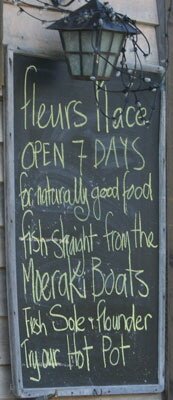 fleurs Place
OPEN 7 DAYS
for naturally good food
fish straight from the
Moeraki Boats
Fresh Sole + flounder
Try our Hot Pot